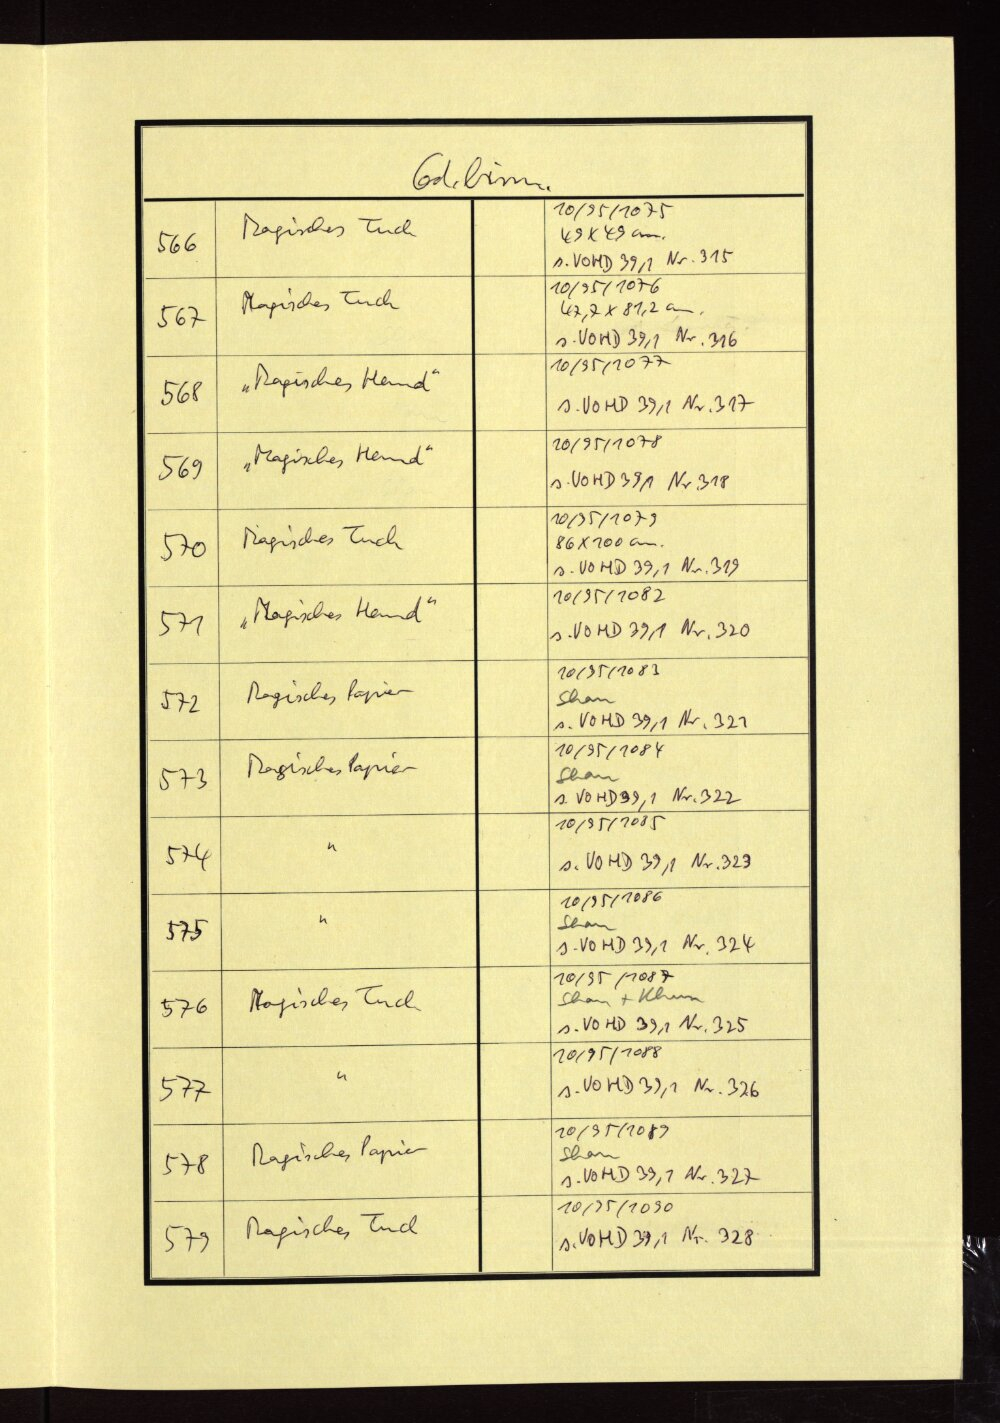 Cod. birm.
566 Magisches Tuch 10/95/1075
49 x 49 cm.
s. VOHD 39,1 Nr. 315
567 Magisches Tuch 10/95/1076
47,7 x 81,2 cm.
s. VOHD 39,1 Nr. 316
568 „Magisches Hemd“ 10/95/1077
s. VOHD 39,1 Nr. 317
569 „Magisches Hemd“ 10/95/1078
s. VOHD 39,1 Nr. 318
570 Magisches Tuch 10/95/1079
86 x 100 cm.
s. VOHD 39,1 Nr. 319
571 „Magisches Hemd“ 10/95/1082
s. VOHD 39,1 Nr. 320
572 Magisches Papier 10/95/1083
Shan
s. VOHD 39,1 Nr. 321
573 Magisches Papier 10/95/1084
Shan
s. VOHD 39,1 Nr. 322
574 " 10/95/1085
s. VOHD 39,1 Nr. 323
575 " 10/95/1086
Shan
s. VOHD 39,1 Nr. 324
576 Magisches Tuch 10/95/1087
Shan + Khün
s. VOHD 39,1 Nr. 325
577 " 10/95/1088
s. VOHD 39,1 Nr. 326
578 Magisches Papier 10/95/1089
Shan
s. VOHD 39,1 Nr. 327
579 Magisches Tuch 10/95/1090
s. VOHD 39,1 Nr. 328